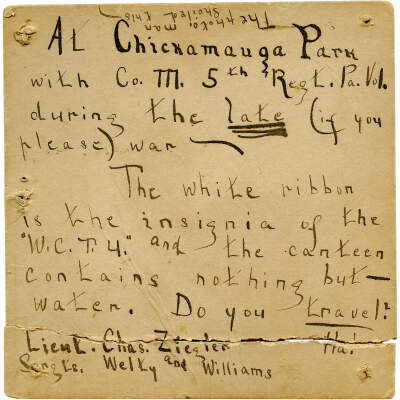 The photo. man
spoiled this
At Chickamauga Park
with Co. M. 5th Regt. Pa. Vol.
during the late (if you
please) war
The white ribbon
is the insignia of the
"W.C.T.U." and the canteen
contains nothing but—
water. Do you travel?
Lieut. Chas. Ziegler Ha!
Sergts. Welty and Williams